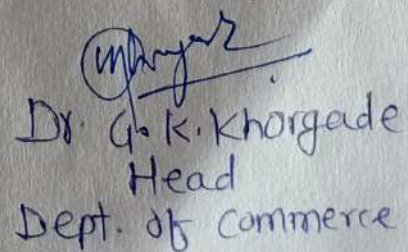 Dr. G. K. Khorgade
Head
Dept. of Commerce